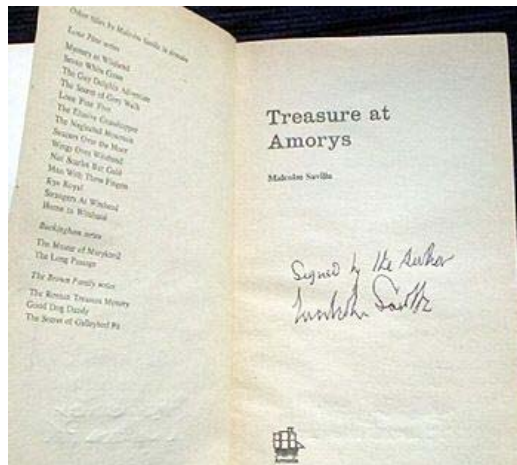 Other titles by Malcolm Saville in Armada
Lone Pine series
Mystery at Witchend
Seven White Gates
The Gay Dolphin Adventure
The Secret of Grey Walls
Lone Pine Five
The Elusive Grasshopper
The Neglected Mountain
Saucers Over the Moor
Wings Over Witchend
Not Scarlet But Gold
Man With Three Fingers
Rye Royal
Strangers At Witchend
Home to Witchend
Buckingham series
The Master of Maryknoll
The Long Passage
The Brown Family series
The Roman Treasure Mystery
Good Dog Dandy
The Secret of Galleybird Pit
Treasure at
Amorys
Malcolm Saville
Signed by the Author
Malcolm Saville
Armada